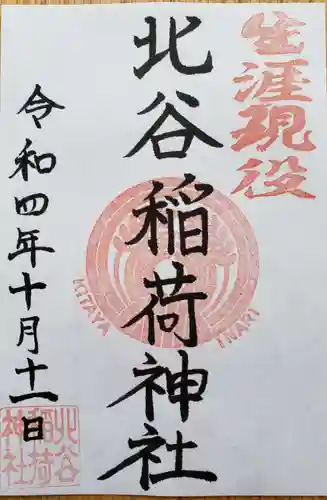 生涯現役
北谷稲荷神社
KITAYA INARI
令和四年十月十一日
北谷
稲荷
神社